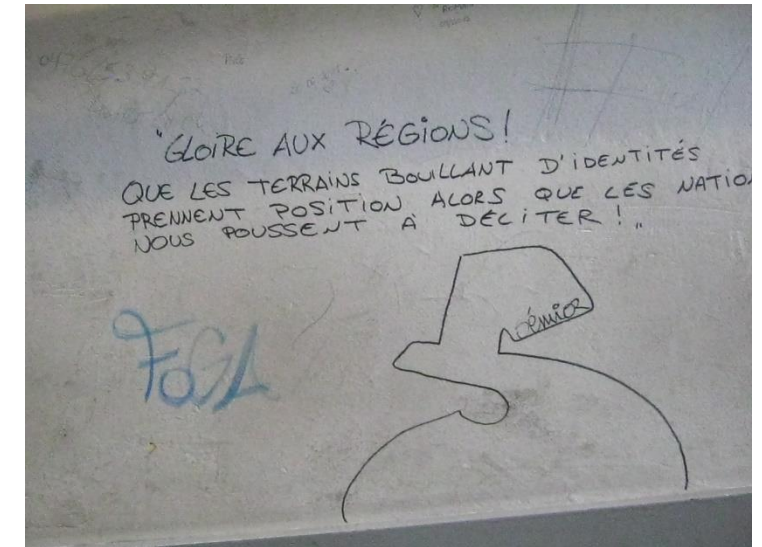 "GLOIRE AUX RÉGIONS!
QUE LES TERRAINS BOUILLANT D'IDENTITÉS
PRENNENT POSITION ALORS QUE LES NATION
NOUS POUSSENT À DÉLITER!"
FOGA